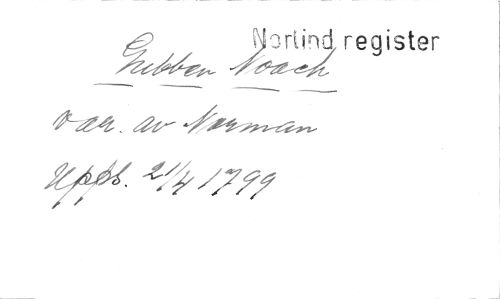 Norlind register
Gubben Noach
var. av Norman
Upps. 21/4 1799